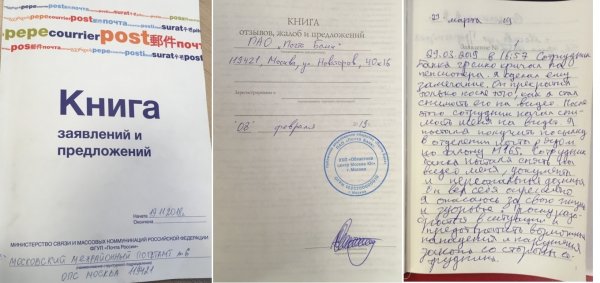 post почта surat
pepecourier post 郵件 почта
Книга
заявлений и
предложений
Начата
Окончена
МИНИСТЕРСТВО СВЯЗИ И МАССОВЫХ КОММУНИКАЦИЙ РОССИЙСКОЙ ФЕДЕРАЦИИ
ФГУП «Почта России»
МОСКОВСКИЙ МЕЖРАЙОННЫЙ ПОЧТАМТ №6
ОПС МОСКВА 119421
КНИГА
отзывов, жалоб и предложений
ПАО "Почта Банк"
119421, Москва, ул. Новаторов, 40к16
Зарегистрировано
"08" февраля 19г.
г. Москва
29 марта 19
29.03.2019 в 16:57 Сотрудник
банка громко кричал на
пенсионера. Я сделал ему
замечание. Он прекратил
только после того, как я стал
снимать его на видео. После
того сотрудник начал сни-
мать меня на видео. Я
пытался получить посылку
в отделении почты
Сотрудник
банка пытался снять на
видео меня, документы
и персональные данные.
Он вёл себя агрессивно
Я опасаюсь за свою жизнь
и здоровье. Прошу разо-
браться в ситуации и
предотвратить возможные
нападения и нарушения
закона со стороны со-
трудника.